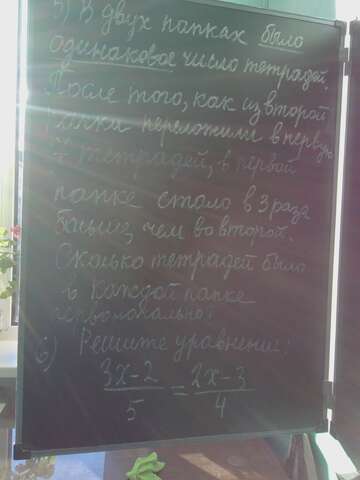 5) В двух папках было
одинаковое число тетрадей.
После того, как из второй
папки переложили в первую
7 тетрадей, в первой
папке стало в 3 раза
больше, чем во второй.
Сколько тетрадей было
в каждой папке
первоначально?
6) Решите уравнение:
3x-2/5 = 2x-3/4